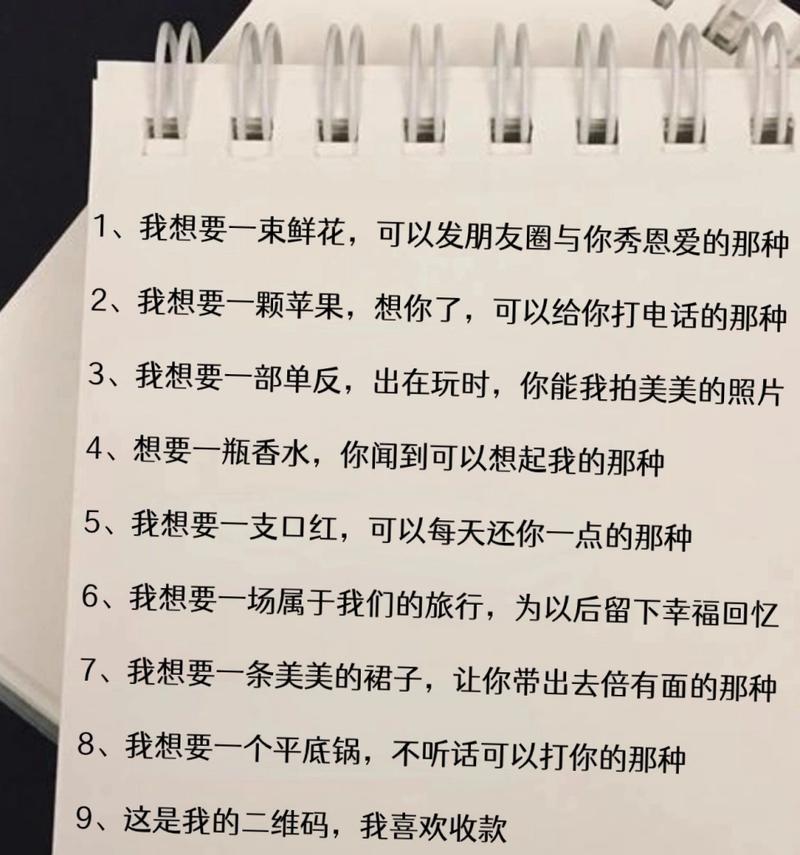 1、我想要一束鲜花，可以发朋友圈与你秀恩爱的那种
2、我想要一颗苹果，想你了，可以给你打电话的那种
3、我想要一部单反，出在玩时，你能我拍美美的照片
4、想要一瓶香水，你闻到可以想起我的那种
5、我想要一支口红，可以每天还你一点的那种
6、我想要一场属于我们的旅行，为以后留下幸福回忆
7、我想要一条美美的裙子，让你带出去倍有面的那种
8、我想要一个平底锅，不听话可以打你的那种
9、这是我的二维码，我喜欢收款